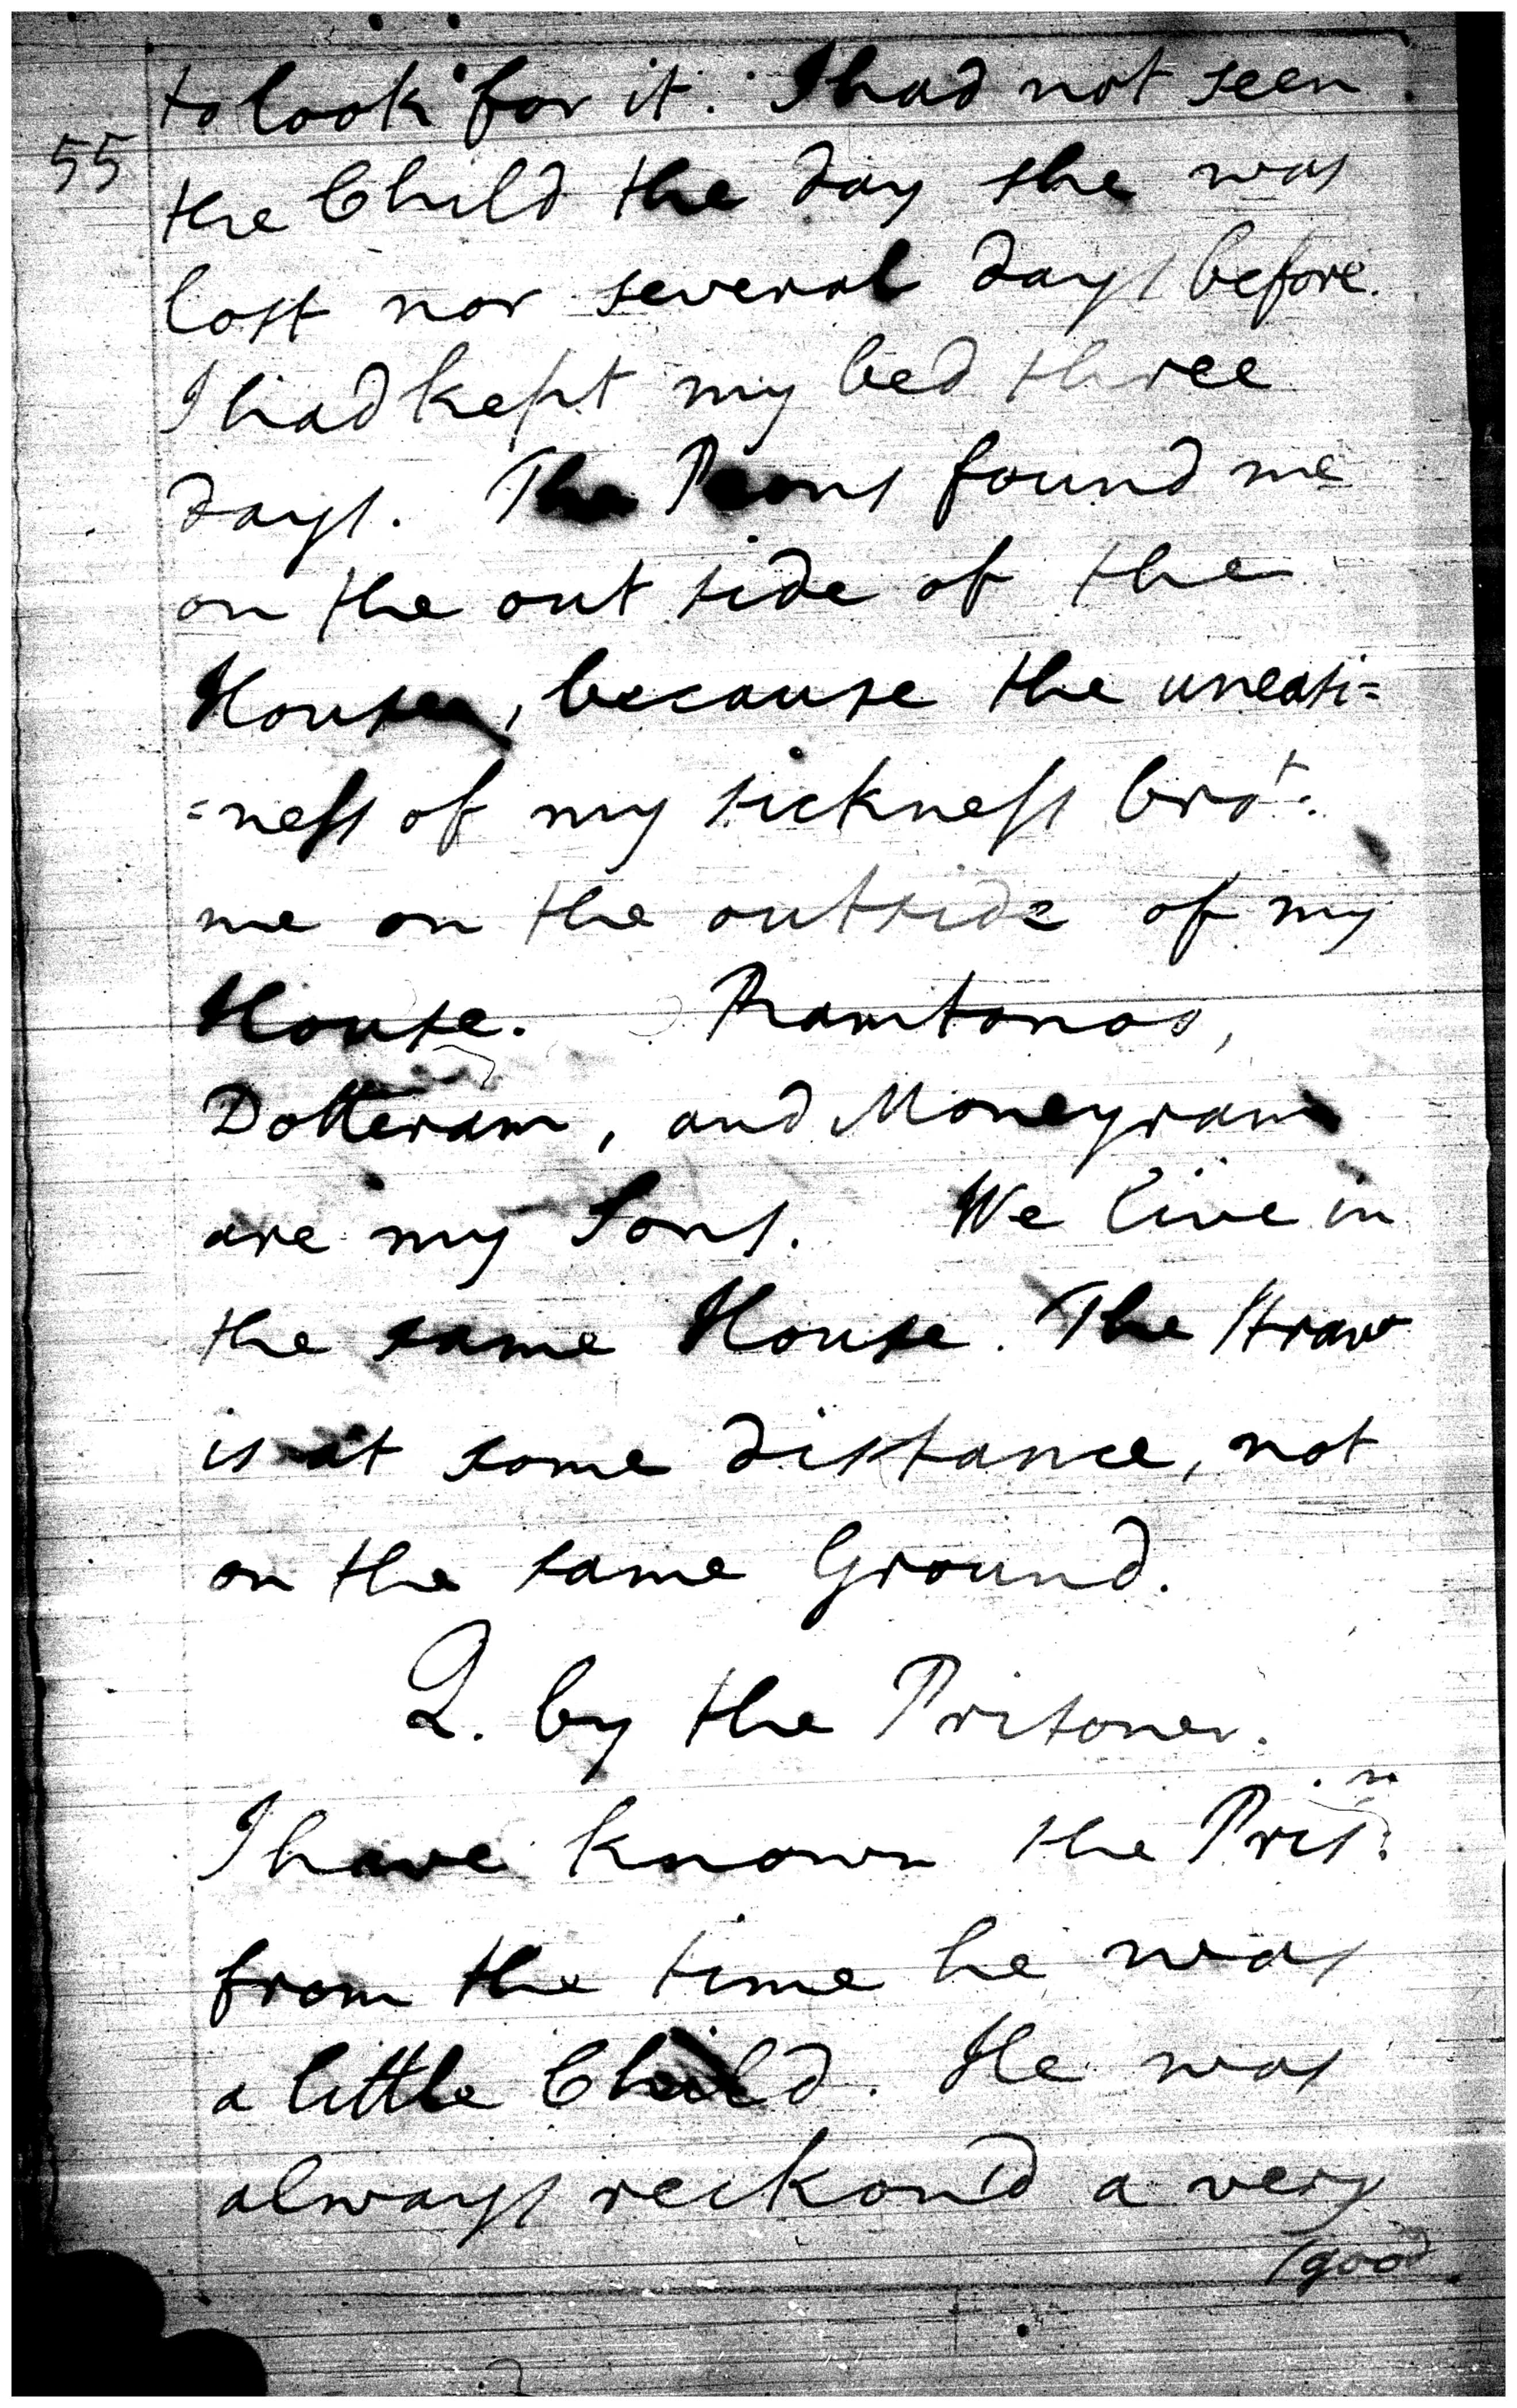 to look for it. I had not seen
55
the Child the day she was
lost nor several days before.
I had kept my bed three
days. The Peons found me
on the out side of the
House, because the uneasi=
=ness of my sickness bro.t
me on the outside of my
House. Ramtonoo,
Dotteram, and Moneyram
are my Sons. We live in
the same House. The Straw
is at some distance, not
on the same Ground.
Q. by the Prisoner.
I have known the Pris.n
from the time he was
a little Child. He was
always reckon'd a very
good